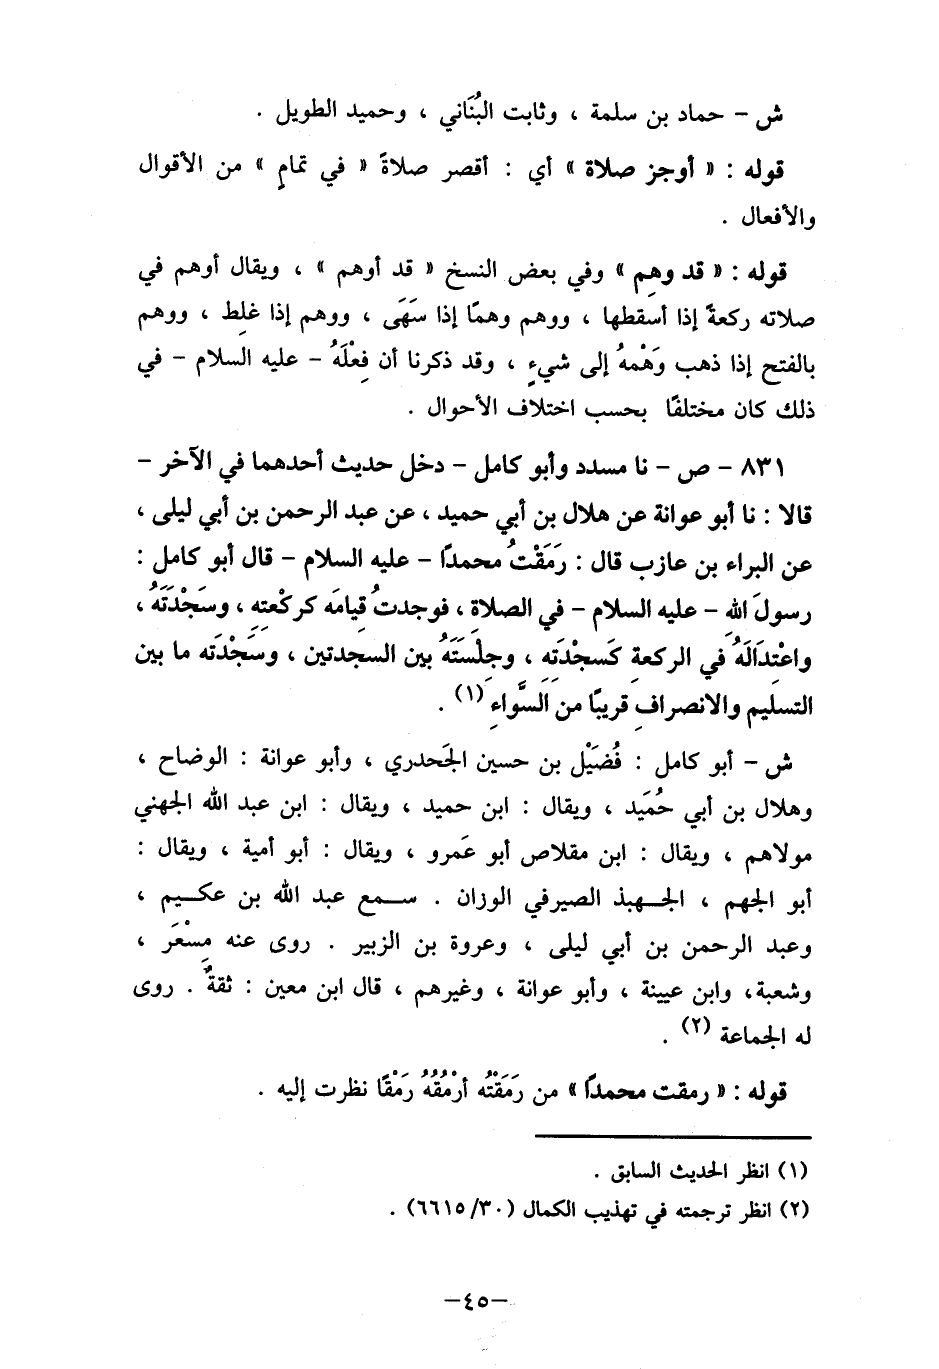 ش – حماد بن سلمة ، وثابت البُنَاني ، وحميد الطويل .
قوله : « أوجز صلاة » أي : أقصر صلاةً « في تمامٍ » من الأقوال
والأفعال .
قوله : « قد وهِم » وفي بعض النسخ « قد أوهم » ، ويقال أوهم في
صلاته ركعةً إذا أسقطها ، ووهم وهمًا إذا سَهَى ، ووهم إذا غلِط ، ووهم
بالفتح إذا ذهب وَهْمهُ إلى شيءٍ ، وقد ذكرنا أن فِعْلَهُ – عليه السلام – في
ذلك كان مختلفًا بحسب اختلاف الأحوال .
٨٣١ – ص – نا مسدد وأبو كامل – دخل حديث أحدهما في الآخر –
قالا : نا أبو عوانة عن هلال بن أبي حميد ، عن عبد الرحمن بن أبي ليلى ،
عن البراء بن عازب قال : رَمَقْتُ محمدًا – عليه السلام – قال أبو كامل :
رسولَ الله – عليه السلام – في الصلاة ، فوجدتُ قيامَه كركْعتِهِ ، وسَجْدَتَهُ ،
واعْتِدَالَهُ في الركعةِ كَسجْدَتِهِ ، وجِلْسَتَهُ بين السجدتين ، وسَجْدَته ما بين
التسليم والانصرافِ قريبًا من السَّواءِ (١) .
ش – أبو كامل : فُضَيْل بن حسين الجَحدري ، وأبو عوانة : الوضاح ،
وهلال بن أبي حُمَيد ، ويقال : ابن حميد ، ويقال : ابن عبد الله الجهني
مولاهم ، ويقال : ابن مقلاص أبو عَمرو ، ويقال : أبو أمية ، ويقال :
أبو الجهم ، الجـهبذ الصيرفي الوزان . سـمع عبد الله بن عكـيم ،
وعبد الرحمن بن أبي ليلى ، وعروة بن الزبير . روى عنه مِسْعَر ،
وشعبة، وابن عيينة ، وأبو عوانة ، وغيرهم ، قال ابن معين : ثقةٌ . روى
له الجماعة (٢) .
قوله : « رمقت محمدًا » من رَمَقْتُه أرْمُقُهُ رَمْقًا نظرت إليه .
(١) انظر الحديث السابق .
(٢) انظر ترجمته في تهذيب الكمال (٦٦١٥/٣٠) .
–٤٥–